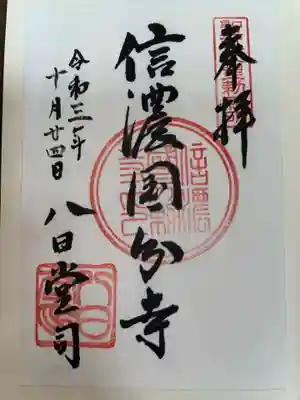 奉拝
信濃国分寺
八日堂司
令和三年
十月廿四日